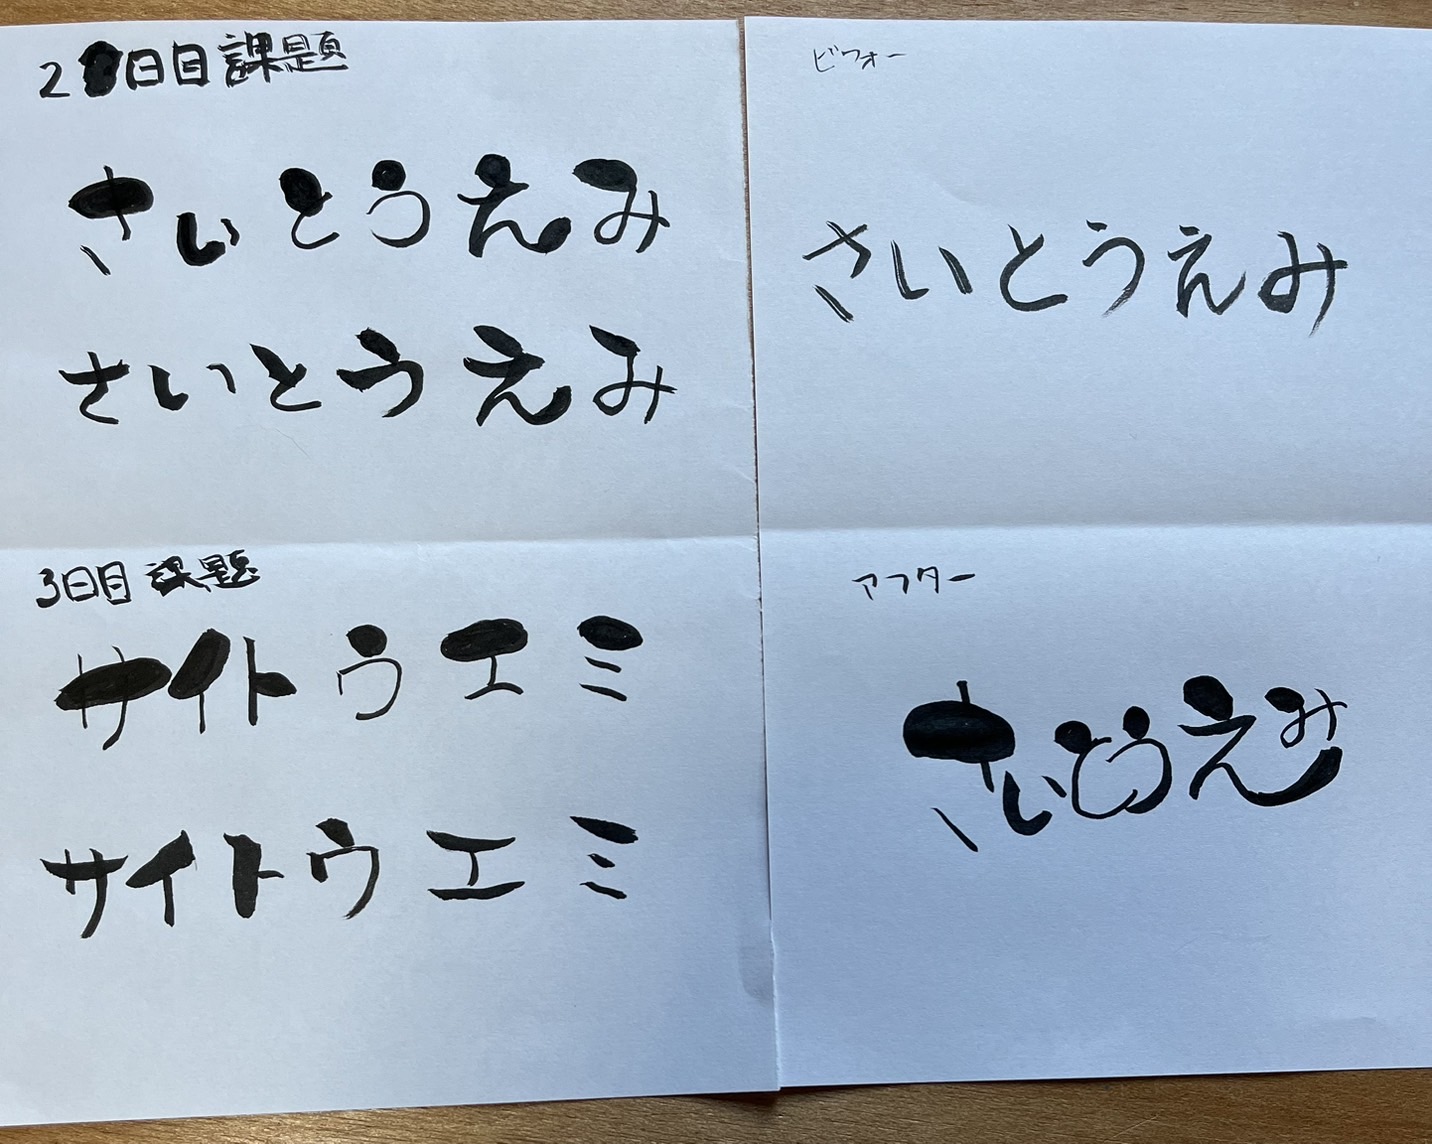 2日目課題
さいとうえみ
さいとうえみ
3日目課題
サイトウエミ
サイトウエミ
ビフォー
さいとうえみ
アフター
さいとうえみ